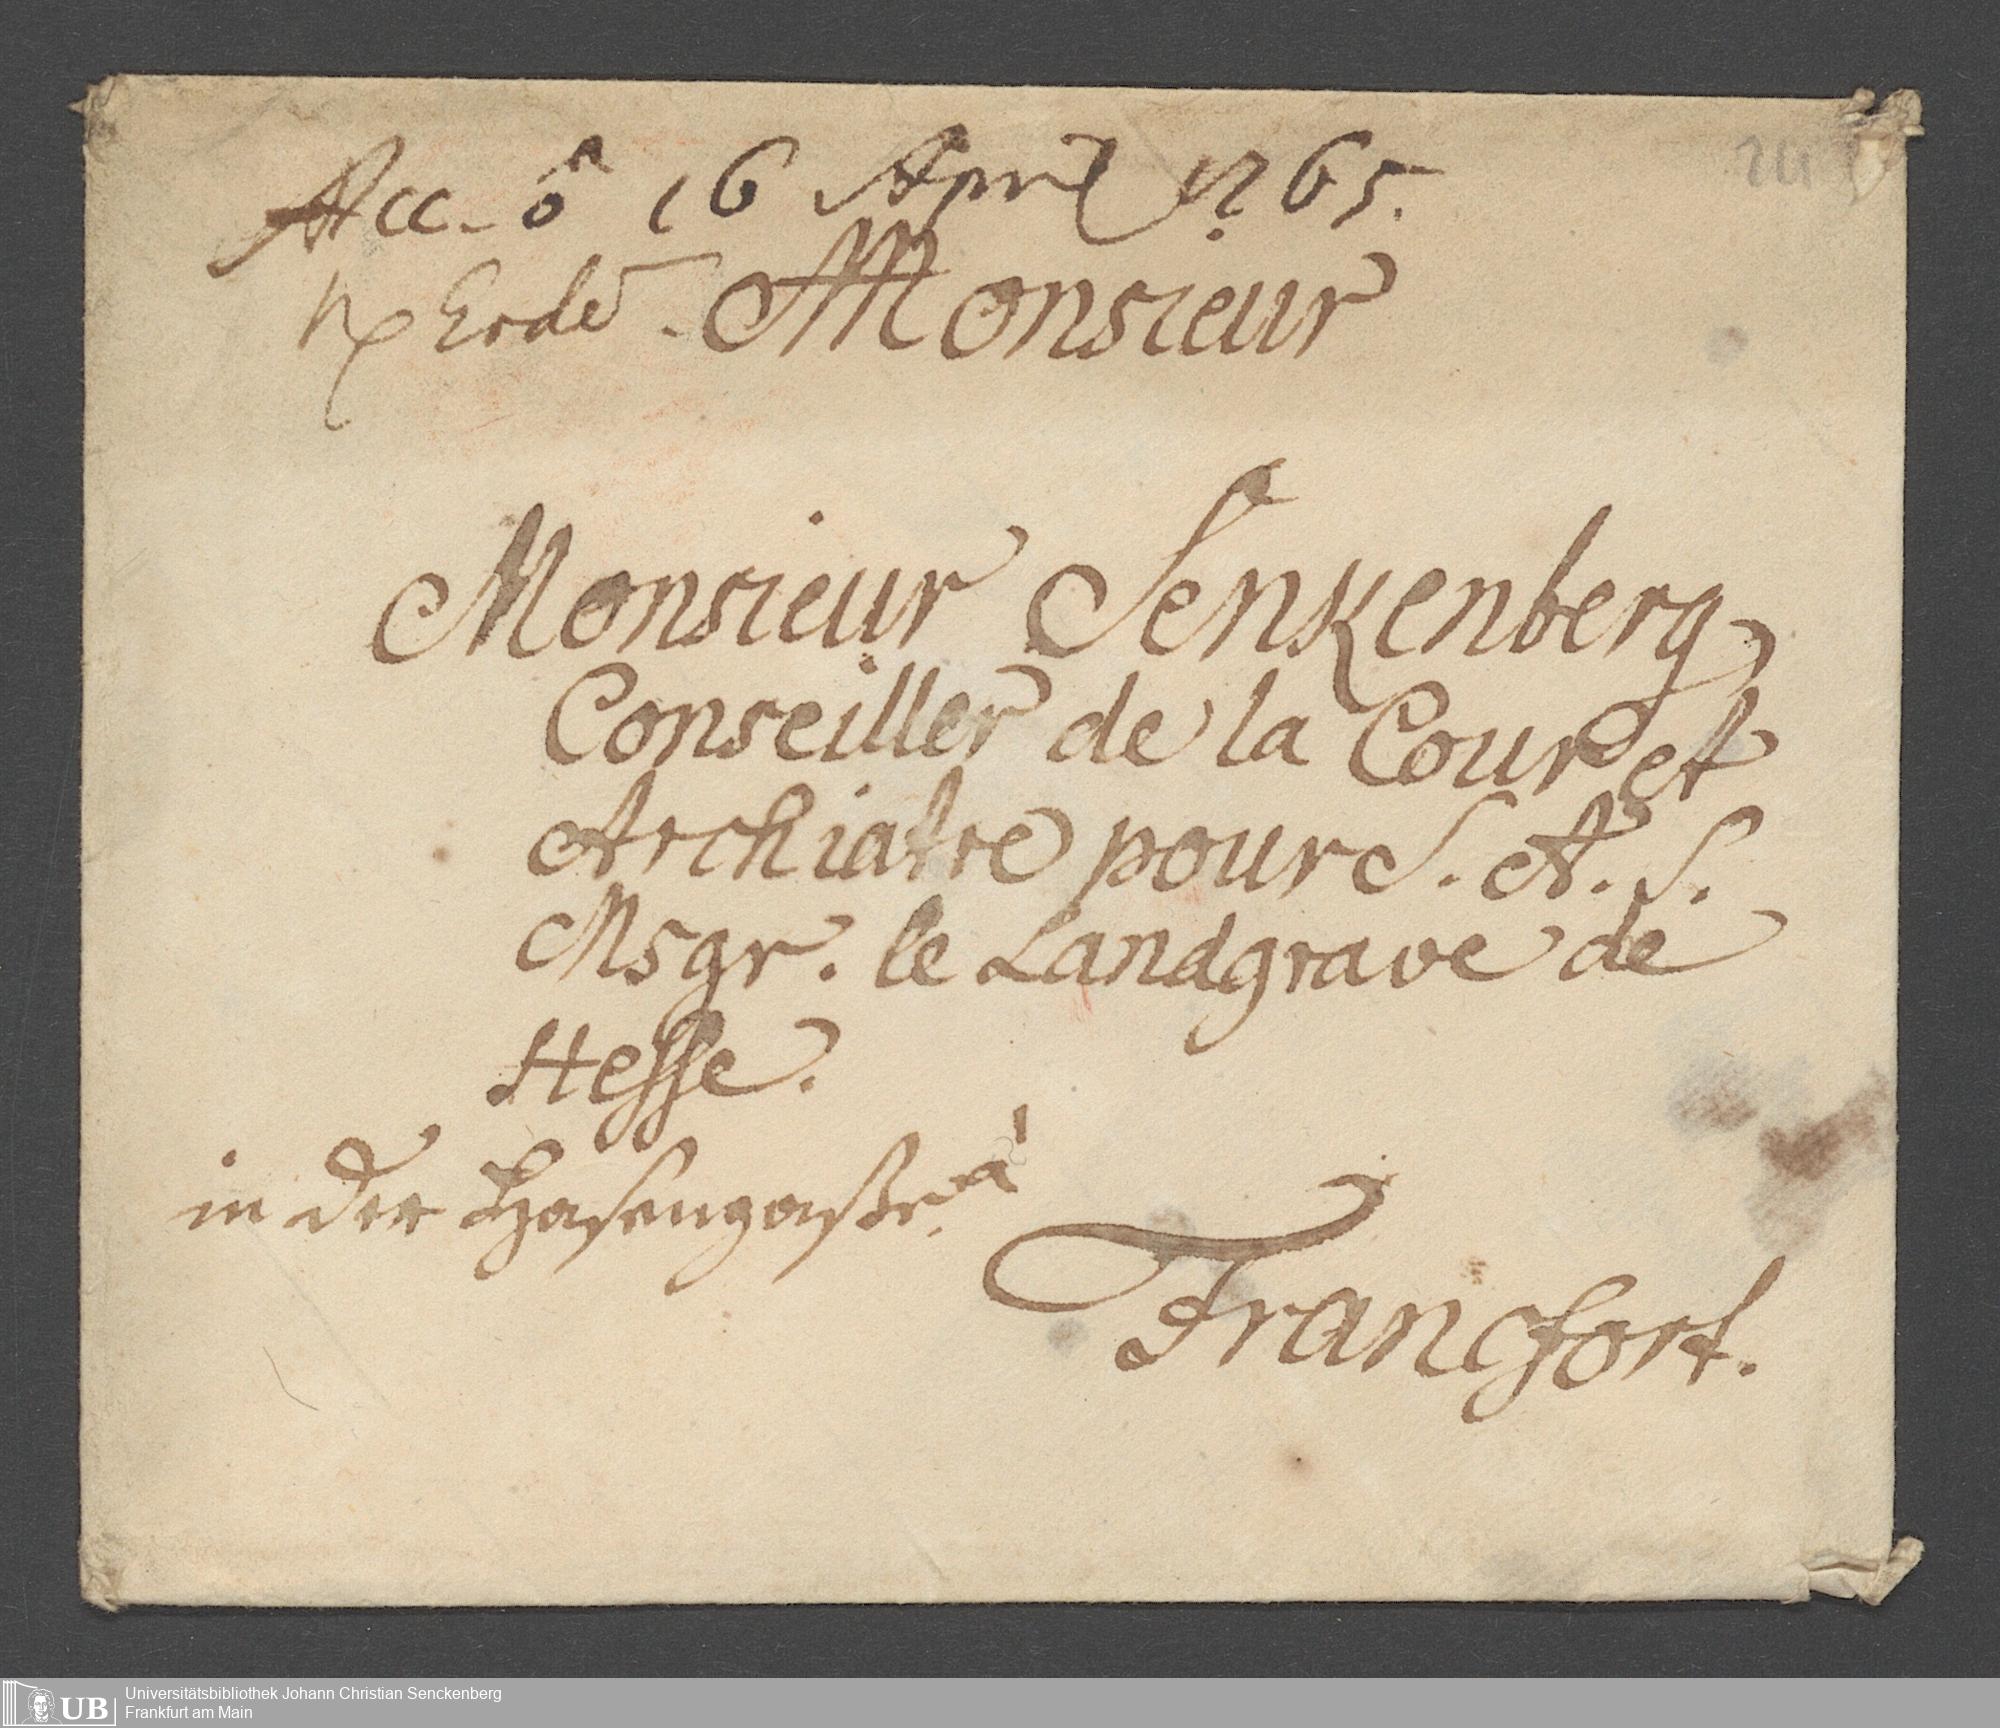 Acc. 16 Apr 1765.
Monsieur
Monsieur Senkenberg
Conseiller de la Cour et
Archiatre pour S. A. S.
Msgr. le Landgrave de
Hesse.
in der Hasengaße. à
Francfort.
UB Universitätsbibliothek Johann Christian Senckenberg
Frankfurt am Main